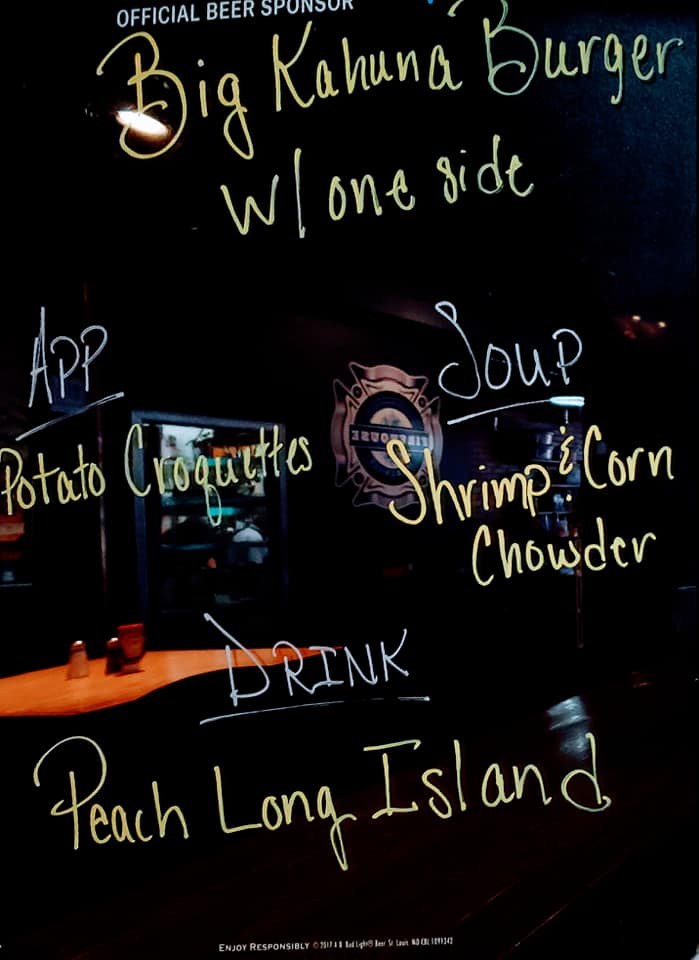 OFFICIAL BEER SPONSOR
Big Kahuna Burger
w/ one side
App
Potato Croquettes
Soup
Shrimp & Corn
Chowder
DRINK
Peach Long Island
FIREHOUSE
ENJOY RESPONSIBLY © 2017 A-B Bud Light® Beer St. Louis, MO